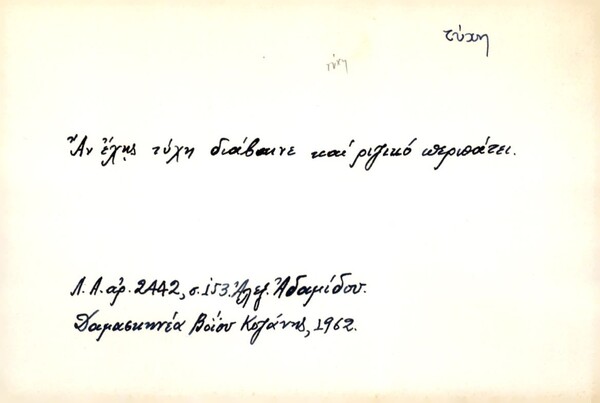 τύχη
τύχη
Ἂν ἔχῃς τύχη διάβαινε καί ριζικό περιπάτει.
Λ. Α. ἀρ. 2442, σ. 153. Ἀλεξ. Ἀδαμίδου.
Δαμασκηνέα Βοΐου Κοζάνης, 1962.